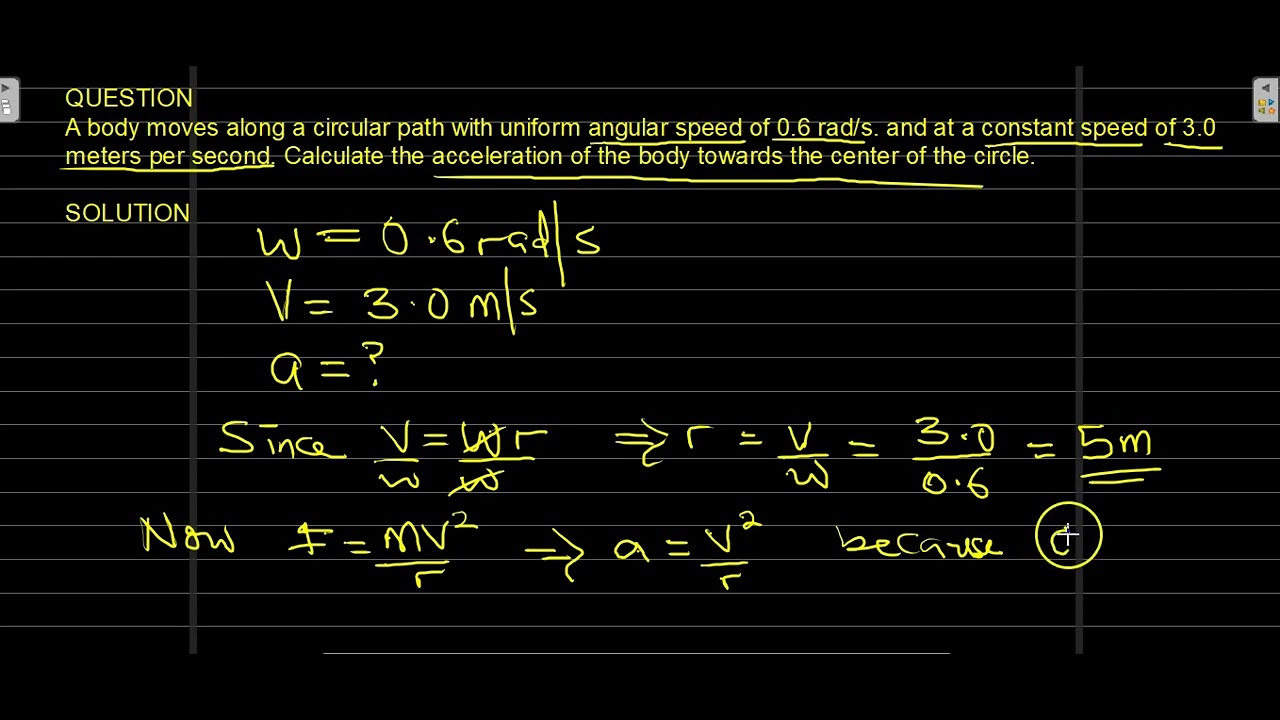 QUESTION
A body moves along a circular path with uniform angular speed of 0.6 rad/s. and at a constant speed of 3.0
meters per second. Calculate the acceleration of the body towards the center of the circle.
SOLUTION
w = 0.6 rad/s
V = 3.0 m/s
a = ?
Since V/w = wr/w ⇒ r = V/w = 3.0/0.6 = 5m
Now F = mv²/r ⇒ a = v²/r because